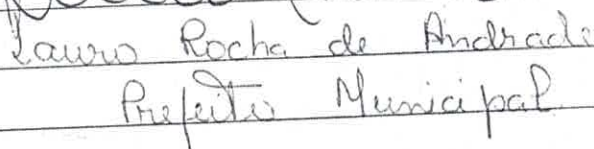 Lauro Rocha de Andrade
Prefeito Municipal